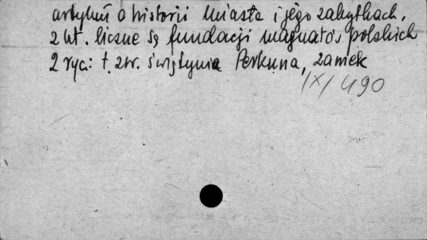 artykuł o historii miasta i jego zabytkach,
z wt. liczne są fundacji magnatów polskich
2 ryc: t. zw. świątynia Perkuna, zamek
IX/490